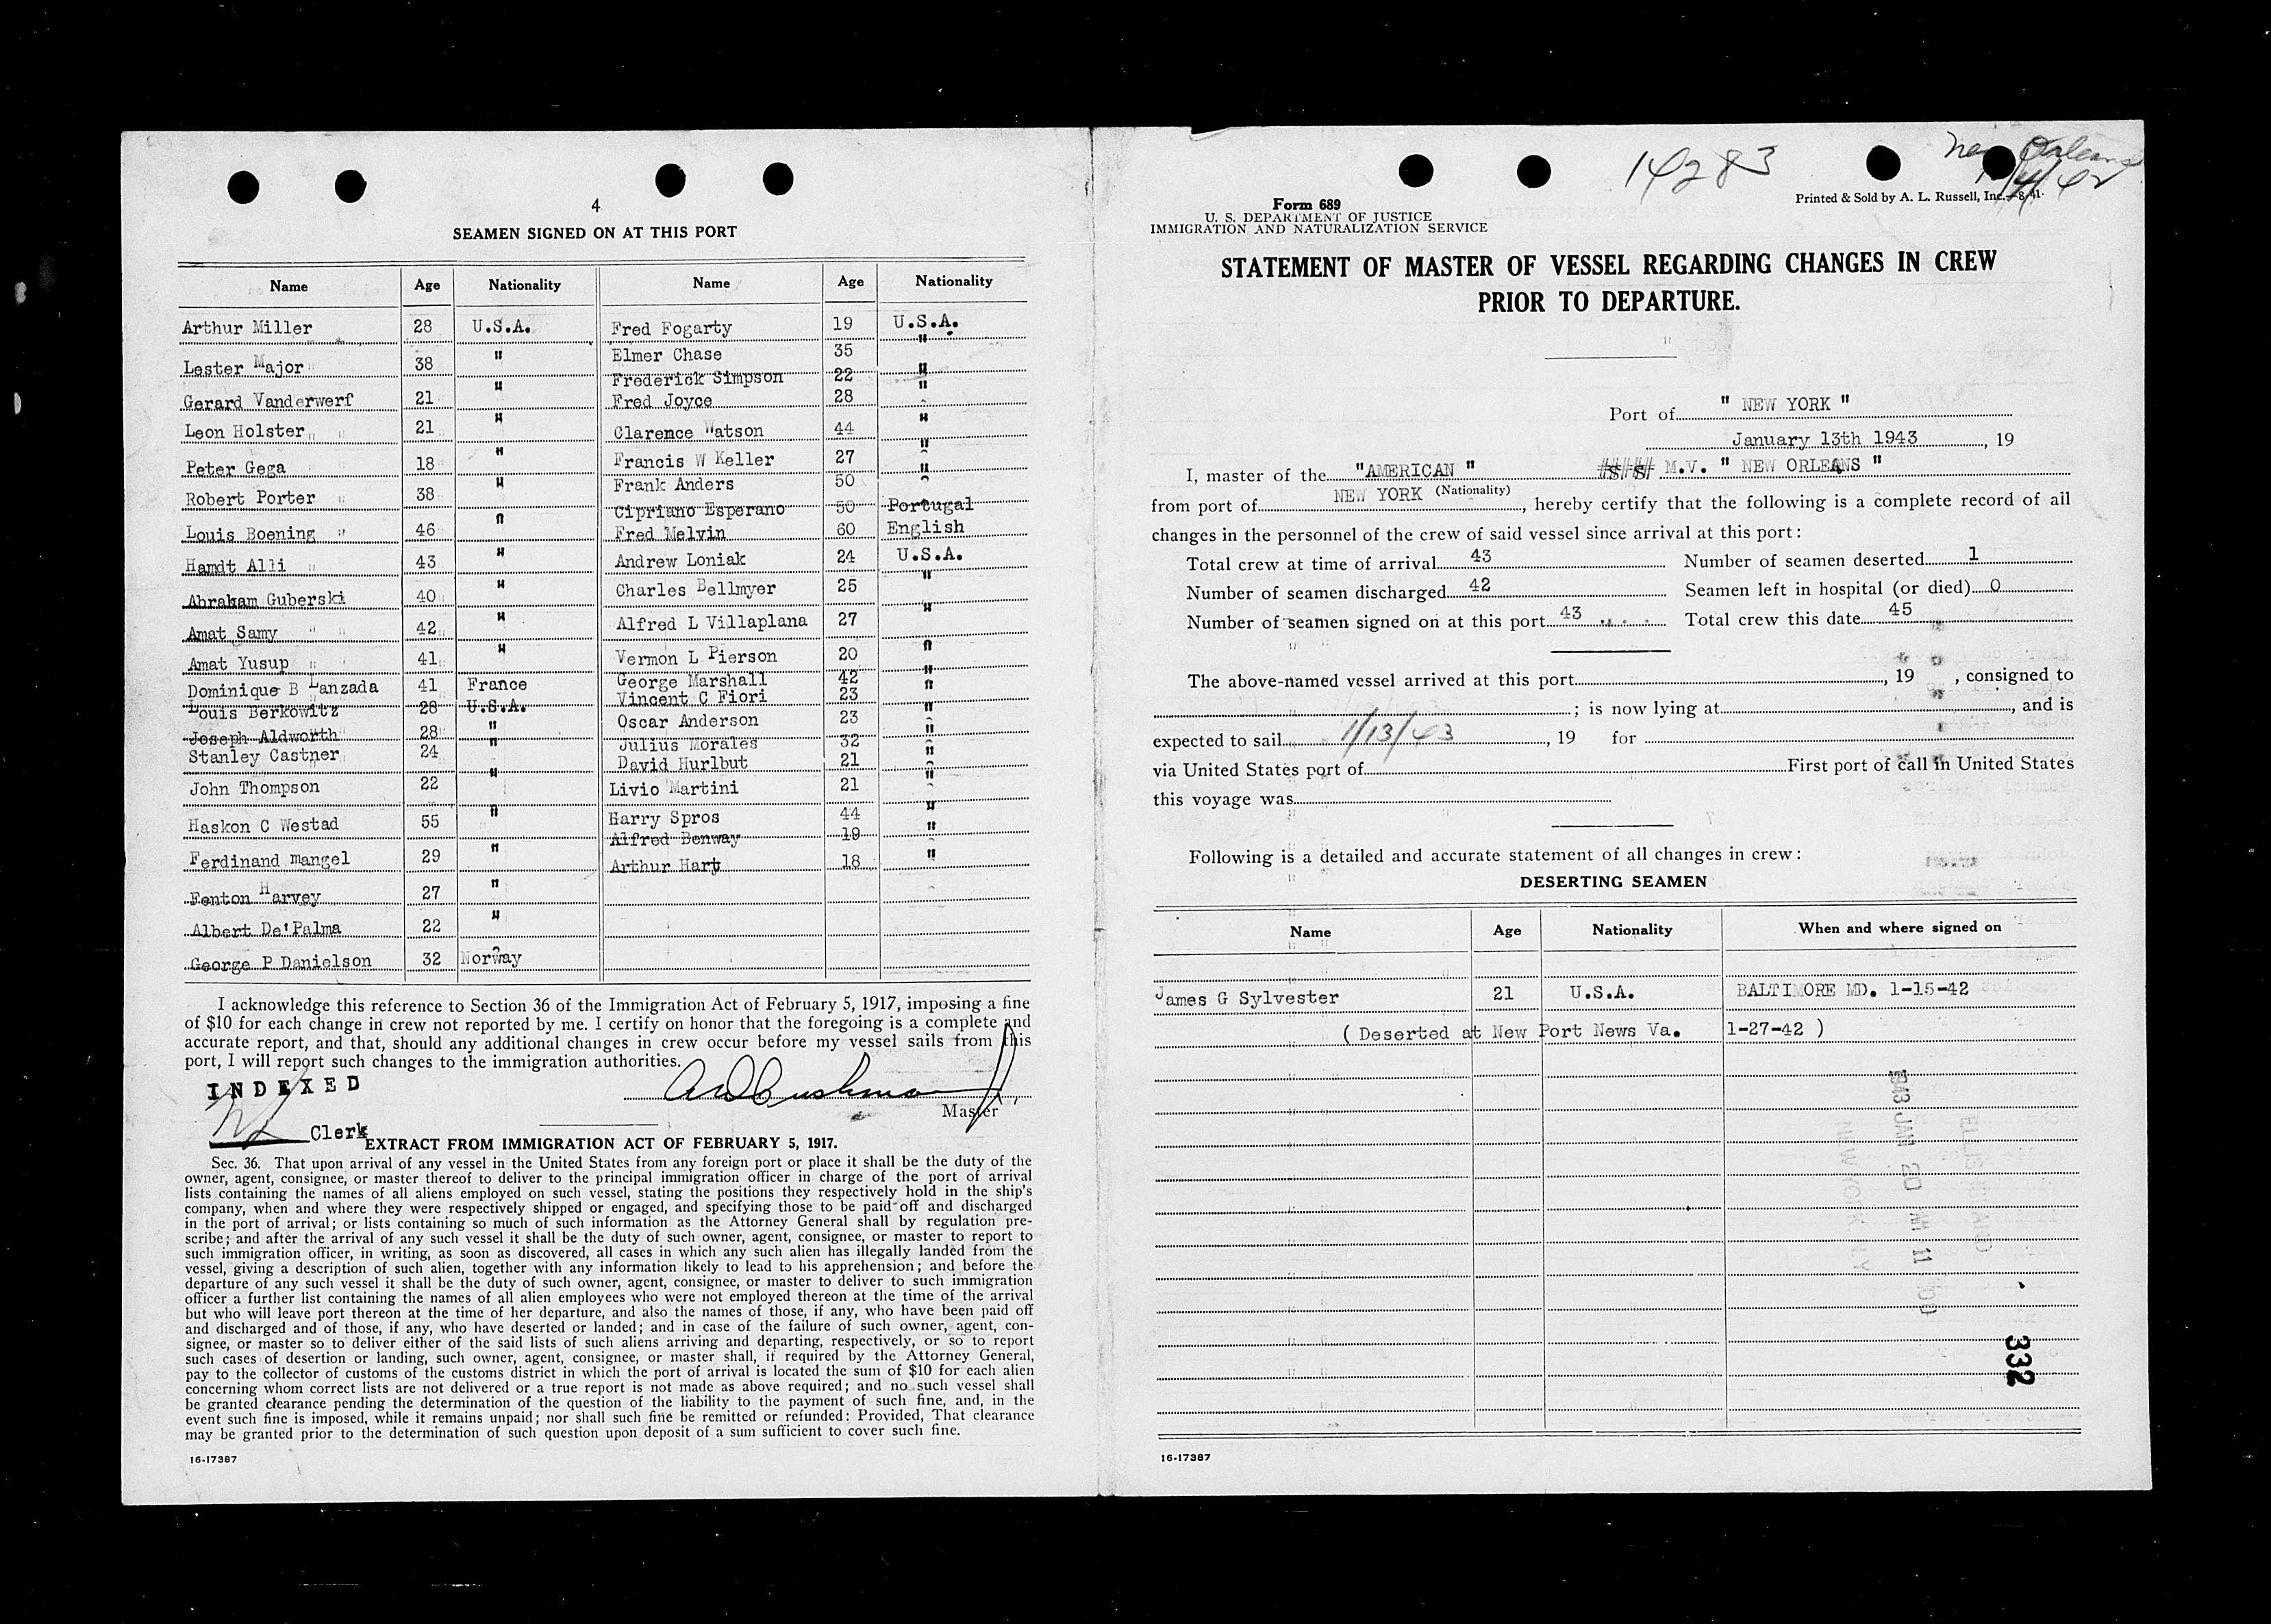 4
SEAMEN SIGNED ON AT THIS PORT
Name Age Nationality Name Age Nationality
Arthur Miller 28 U.S.A. Fred Fogarty 19 U.S.A.
Lester Major 38 " Elmer Chase 35 "
Frederick Simpson 22 "
Gerard Vanderwerf 21 " Fred Joyce 28 "
Leon Holster 21 " Clarence Watson 44 "
Peter Gega 18 " Francis W Keller 27 "
Robert Porter 38 " Frank Anders 50 "
Cipriano Esperano 50 Portugal
Louis Boening 46 " Fred Melvin 60 English
Hamdt Alli 43 " Andrew Loniak 24 U.S.A.
Abraham Guberski 40 " Charles Bellmyer 25 "
Amat Samy 42 " Alfred L Villaplana 27 "
Amat Yusup 41 " Vermon L Pierson 20 "
Dominique B Lanzada 41 France George Marshall 42 "
Louis Berkowitz 28 U.S.A. Vincent C Fiori 23 "
Joseph Aldworth 28 " Oscar Anderson 23 "
Stanley Castner 24 " Julius Morales 32 "
David Hurlbut 21 "
John Thompson 22 " Livio Martini 21 "
Haskon C Westad 55 " Harry Spros 44 "
Alfred Benway 19 "
Ferdinand mangel 29 " Arthur Hart 18 "
Fenton Harvey 27 "
Albert De'Palma 22 "
George P Danielson 32 Norway
I acknowledge this reference to Section 36 of the Immigration Act of February 5, 1917, imposing a fine
of $10 for each change in crew not reported by me. I certify on honor that the foregoing is a complete and
accurate report, and that, should any additional changes in crew occur before my vessel sails from this
port, I will report such changes to the immigration authorities.
INDEXED
Master
Clerk
EXTRACT FROM IMMIGRATION ACT OF FEBRUARY 5, 1917.
Sec. 36. That upon arrival of any vessel in the United States from any foreign port or place it shall be the duty of the
owner, agent, consignee, or master thereof to deliver to the principal immigration officer in charge of the port of arrival
lists containing the names of all aliens employed on such vessel, stating the positions they respectively hold in the ship's
company, when and where they were respectively shipped or engaged, and specifying those to be paid off and discharged
in the port of arrival; or lists containing so much of such information as the Attorney General shall by regulation pre-
scribe; and after the arrival of any such vessel it shall be the duty of such owner, agent, consignee, or master to report to
such immigration officer, in writing, as soon as discovered, all cases in which any such alien has illegally landed from the
vessel, giving a description of such alien, together with any information likely to lead to his apprehension; and before the
departure of any such vessel it shall be the duty of such owner, agent, consignee, or master to deliver to such immigration
officer a further list containing the names of all alien employees who were not employed thereon at the time of the arrival
but who will leave port thereon at the time of her departure, and also the names of those, if any, who have been paid off
and discharged and of those, if any, who have deserted or landed; and in case of the failure of such owner, agent, con-
signee, or master so to deliver either of the said lists of such aliens arriving and departing, respectively, or so to report
such cases of desertion or landing, such owner, agent, consignee, or master shall, if required by the Attorney General,
pay to the collector of customs of the customs district in which the port of arrival is located the sum of $10 for each alien
concerning whom correct lists are not delivered or a true report is not made as above required; and no such vessel shall
be granted clearance pending the determination of the question of the liability to the payment of such fine, and, in the
event such fine is imposed, while it remains unpaid; nor shall such fine be remitted or refunded: Provided, That clearance
may be granted prior to the determination of such question upon deposit of a sum sufficient to cover such fine.
16-17387
14283
New Orleans
Printed & Sold by A. L. Russell, Inc.—8-41
Form 689
U. S. DEPARTMENT OF JUSTICE
IMMIGRATION AND NATURALIZATION SERVICE
STATEMENT OF MASTER OF VESSEL REGARDING CHANGES IN CREW
PRIOR TO DEPARTURE.
Port of " NEW YORK "
January 13th 1943, 19
I, master of the "AMERICAN " M.V. " NEW ORLEANS "
(Nationality)
from port of NEW YORK, hereby certify that the following is a complete record of all
changes in the personnel of the crew of said vessel since arrival at this port:
Total crew at time of arrival 43 Number of seamen deserted 1
Number of seamen discharged 42 Seamen left in hospital (or died) 0
Number of seamen signed on at this port 43 Total crew this date 45
The above-named vessel arrived at this port, 19 , consigned to
; is now lying at, and is
expected to sail 1/13/43, 19 for
via United States port of First port of call in United States
this voyage was
Following is a detailed and accurate statement of all changes in crew:
DESERTING SEAMEN
Name Age Nationality When and where signed on
James G Sylvester 21 U.S.A. BALTIMORE MD. 1-15-42
( Deserted at New Port News Va. 1-27-42 )
332
16-17387